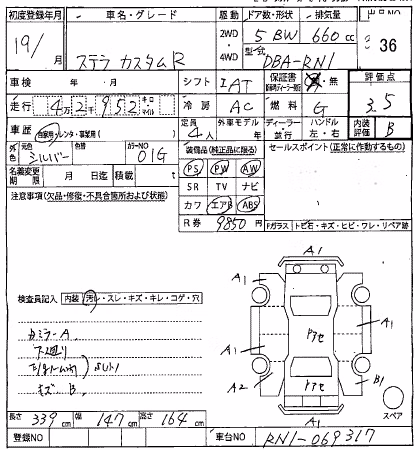 初度登録年月 車名・グレード 駆動 ドア数・形状 排気量 出品NO
19/ 月 ステラ カスタムR 2WD 4WD 5 BW 660 cc 36
型式 DBA-RN1
車検 年・月 シフト IAT 保証書 有・無 評価点 3.5
走行 4万2千952 キロ マイル 冷房 AC 燃料 G 内装評価 B
車歴 自家用・レンタ・事業用( ) 定員 4人 外車モデル 年 ディーラー 並行 ハンドル 左・右
外色 シルバー 元色 色替 カラーNO 01G 装備品(純正品に限る) セールスポイント(正常に作動するもの)
名義変更期限 月 日迄 積載 t PS PW AW
注意事項(欠品・修復・不具合箇所および状態) SR TV ナビ
カワ エアB ABS
R券 9850円 Fガラス トビ石・キズ・ヒビ・ワレ・リペア跡
A1
A1
検査員記入 内装 汚レ・スレ・キズ・キレ・コゲ・穴
A1 A1
A2 B1
カミラーA
下廻り
キズ B
スペア
長さ 339cm 幅 147cm 高さ 164cm A1
登録NO 車台NO RN1-069317